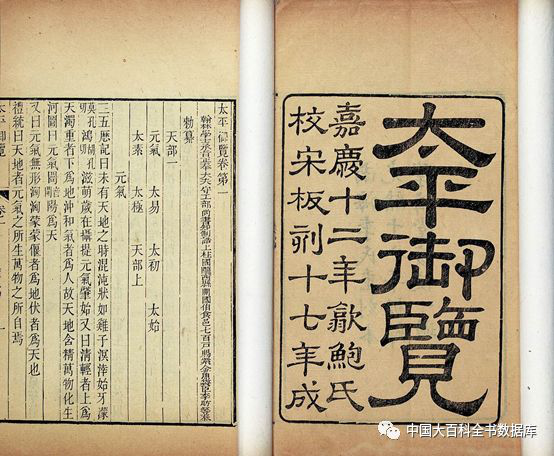 太平御覽
嘉慶十二年歙鮑氏
校宋板刻十七年成
太平御覽卷第一
翰林學士承旨正奉大夫守工部尚書知制誥上柱國隴西縣開國伯食邑七百戶賜紫金魚袋臣李昉等奉
勅纂
天部一
元氣 太易 太初 太始
太素 太極 天部上
元氣
三五歴記曰未有天地之時混沌狀如雞子溟涬始牙濛
莫孔切鴻胡孔切滋萌歲在攝提元氣肇始又曰清輕者上爲
天濁重者下爲地沖和氣者爲人故天地含精萬物化生
河圖曰元氣闓陽爲天
又曰元氣無形洶洶蒙蒙偃者爲地伏者爲天也
禮統曰天地者元氣之所生萬物之所自焉
太平御覽 卷一
中国大百科全书数据库